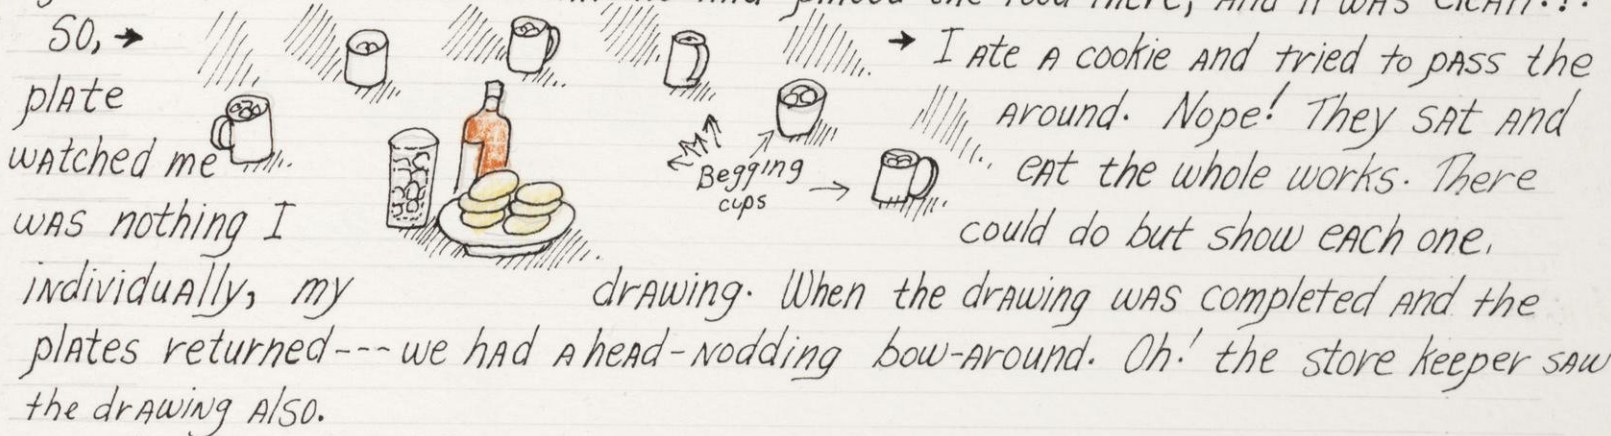 placed the food there, and it was clean!!!
So, → → I ate a cookie and tried to pass the
plate around. Nope! They sat and
watched me eat the whole works. There
was nothing I could do but show each one,
individually, my drawing. When the drawing was completed and the
plates returned---we had a head-nodding bow-around. Oh! the store keeper saw
the drawing also.
Begging
cups